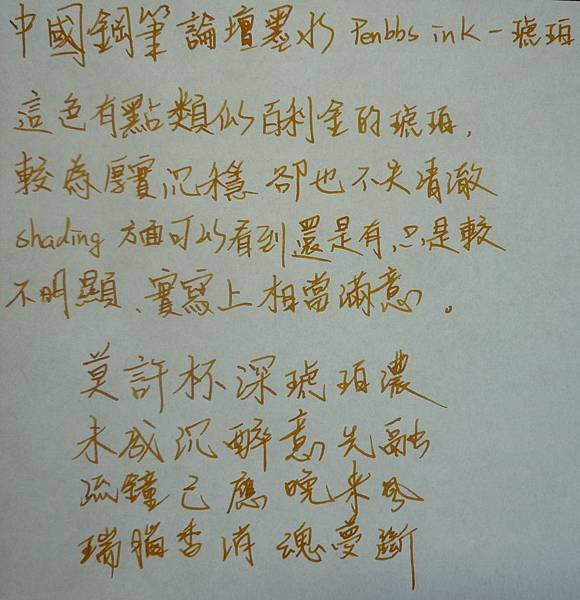 中國鋼筆論壇墨水 Penbbs ink - 琥珀
這色有點類似百利金的琥珀,
較為厚實沉穩 卻也不失清澈
shading 方面可以看到還是有,只是較
不明顯、實寫上相當滿意。
莫許杯深琥珀濃
未成沉醉意先融
疏鐘己應晚來風
瑞腦香消魂夢斷